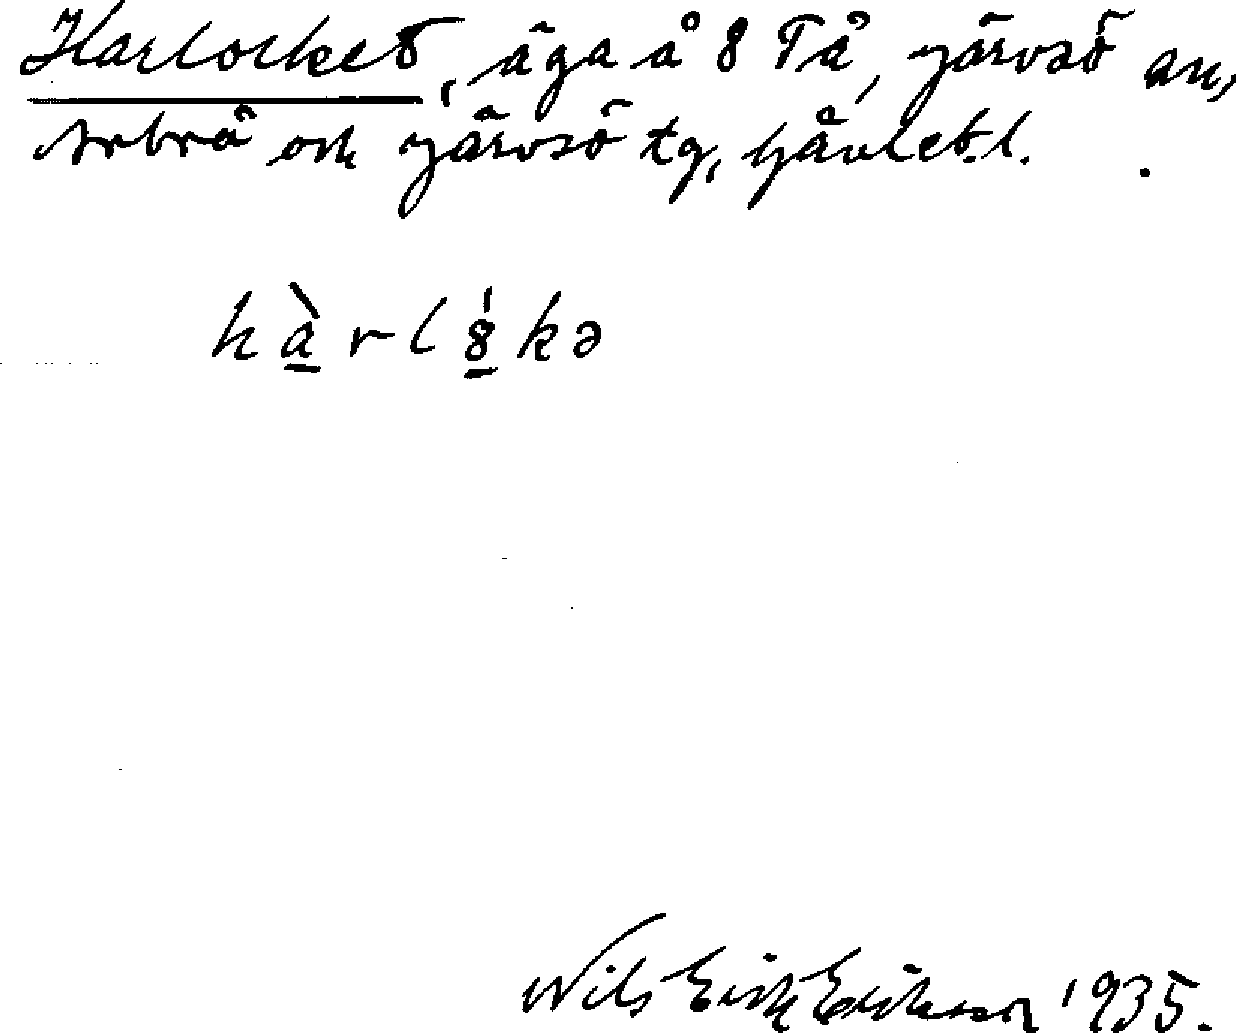 Harlocket, äga å 8 Tå, Järvsö sn,
Arbrå och Järvsö tg, Gävleb.l.
hàrl8̍kə
Nils Erik Eriksson 1935.